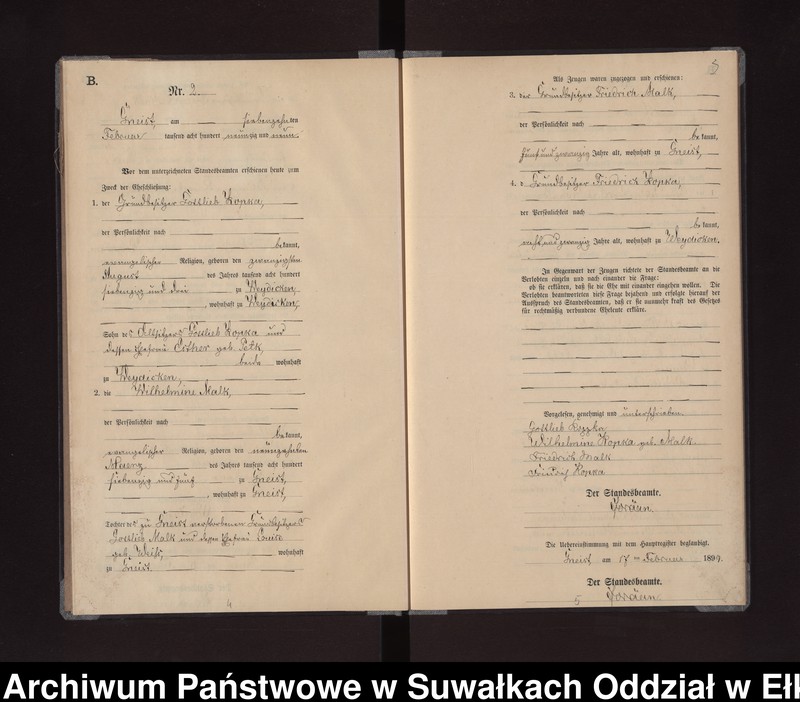 B.
Nr. 2.
Gneist am siebenzehnten
Februar tausend acht hundert neunzig und neun.
Vor dem unterzeichneten Standesbeamten erschienen heute zum
Zweck der Eheschließung:
1. der Grundbesitzer Gottlieb Kopka,
der Persönlichkeit nach
bekannt,
evangelischer Religion, geboren den zwanzigsten
August des Jahres tausend acht hundert
siebenzig und drei zu Weydicken,
, wohnhaft zu Weydicken,
Sohn des Altsitzers Gottlieb Kopka und
dessen Ehefrau Esther geb. Petk
beide wohnhaft
zu Weydicken,
2. die Wilhelmine Malk,
der Persönlichkeit nach
bekannt,
evangelischer Religion, geboren den neunzehnten
Maerz des Jahres tausend acht hundert
siebenzig und fünf zu Gneist,
, wohnhaft zu Gneist,
Tochter des zu Gneist verstorbenen Grundbesitzers
Gottlieb Malk und dessen Ehefrau Louise
geb. Weiß, wohnhaft
zu Gneist.
4
Als Zeugen waren zugezogen und erschienen:
3. der Grundbesitzer Friedrich Malk,
der Persönlichkeit nach
bekannt,
fünf und zwanzig Jahre alt, wohnhaft zu Gneist,
4. Grundbesitzer Friedrich Kopka,
der Persönlichkeit nach
bekannt,
acht und zwanzig Jahre alt, wohnhaft zu Weydicken.
In Gegenwart der Zeugen richtete der Standesbeamte an die
Verlobten einzeln und nach einander die Frage:
ob sie erklären, daß sie die Ehe mit einander eingehen wollen. Die
Verlobten beantworteten diese Frage bejahend und erfolgte hierauf der
Ausspruch des Standesbeamten, daß er sie nunmehr kraft des Gesetzes
für rechtmäßig verbundene Eheleute erkläre.
Vorgelesen, genehmigt und unterschrieben
Gottlieb
Wilhelmine Kopka geb. Malk.
Friedrich Malk
Friedrich Kopka
Der Standesbeamte.
Die Uebereinstimmung mit dem Hauptregister beglaubigt.
Gneist am 17ten Februar 1899.
Der Standesbeamte.
5
Archiwum Państwowe w Suwałkach Oddział w Ełk